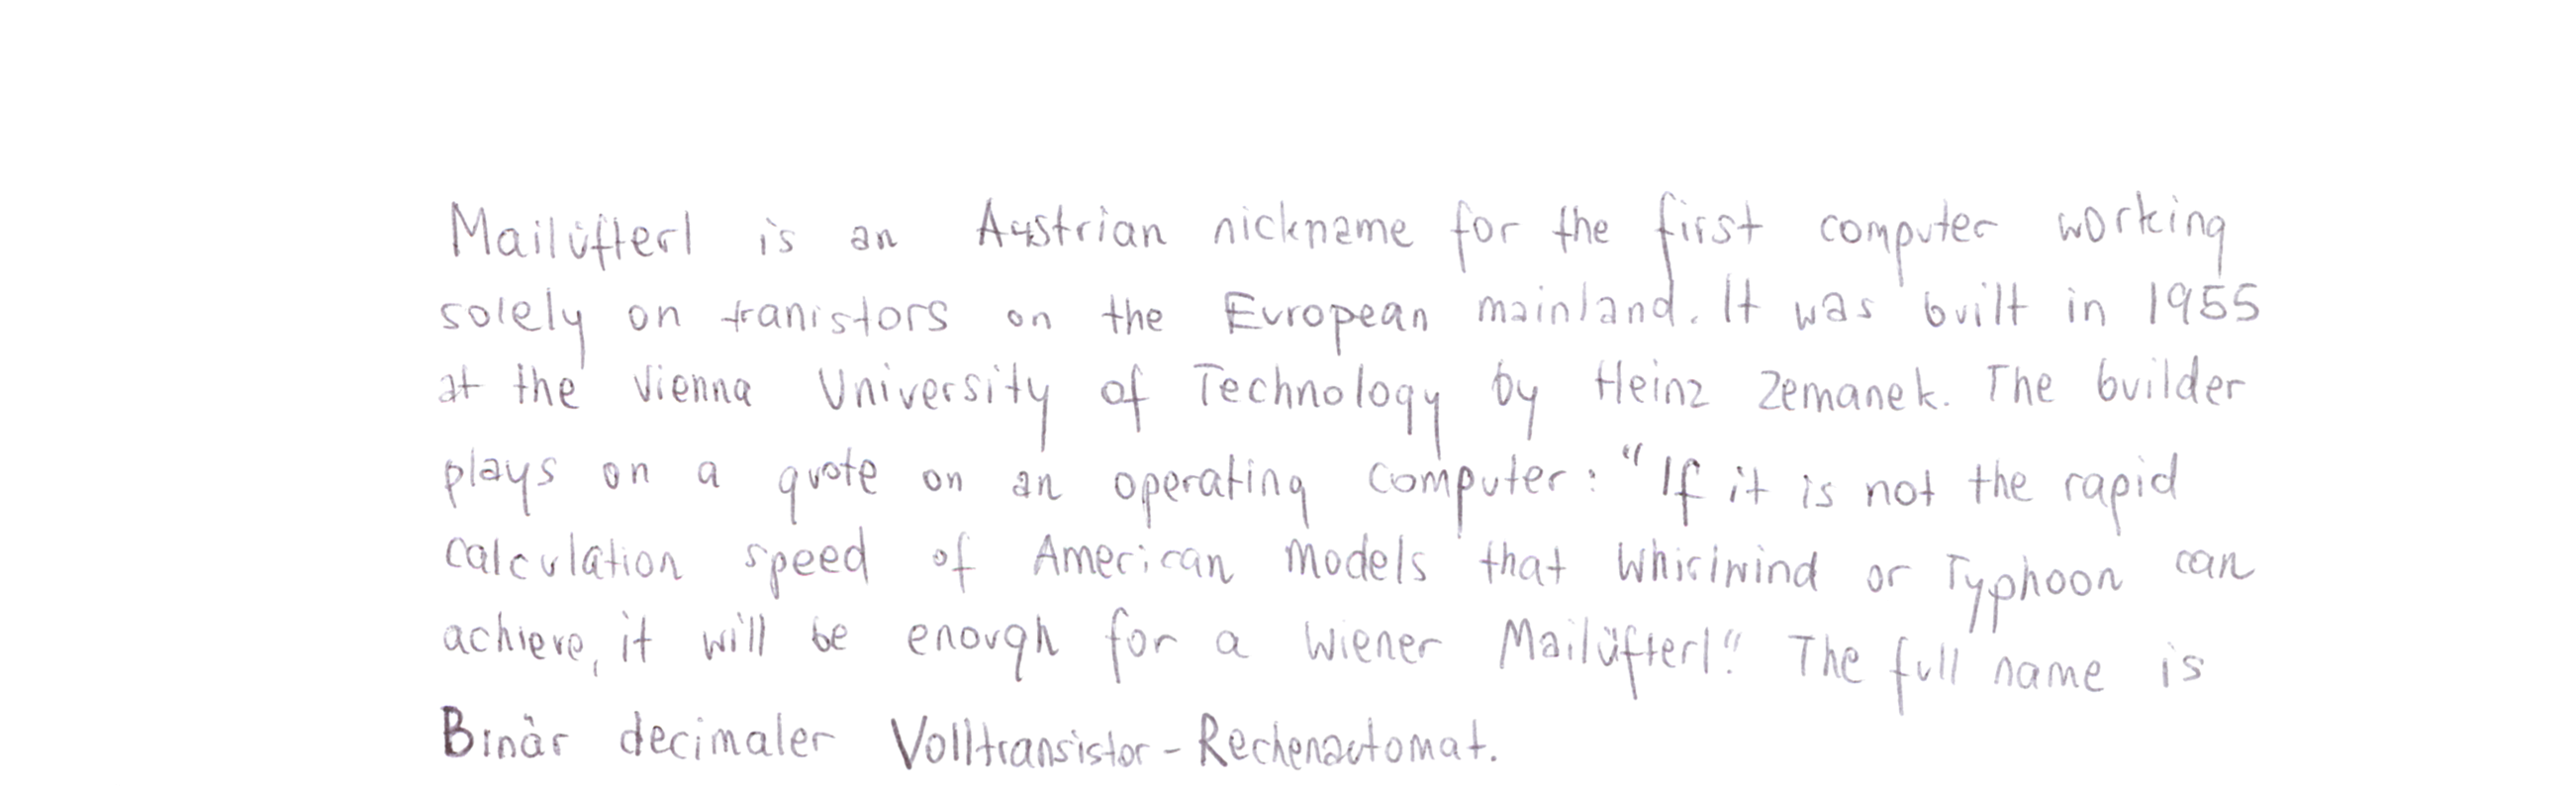 Mailüfterl is an Austrian nickname for the first computer working
solely on tranistors on the European mainland. It was built in 1955
at the Vienna University of Technology by Heinz Zemanek. The builder
plays on a quote on an operating computer: "If it is not the rapid
calculation speed of American models that Whirlwind or Typhoon can
achieve, it will be enough for a Wiener Mailüfterl." The full name is
Binär decimaler Volltransistor-Rechenautomat.